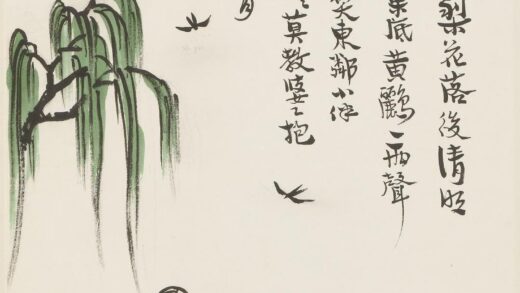 梨花落後清明
葉底黃鸝一兩聲
笑東鄰小伴
莫教
抱